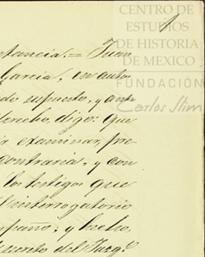 CENTRO DE
ESTUDIOS
DE HISTORIA
DE MEXICO
FUNDACIÓN
Carlos Slim
1
stancia. = Juan
Garcia, en autos
do supuesto, y ante
derecho, digo: que
examinar, pre
contraria, y con
los testigos que
interrogatorio
y hecho,
del Juzg.º